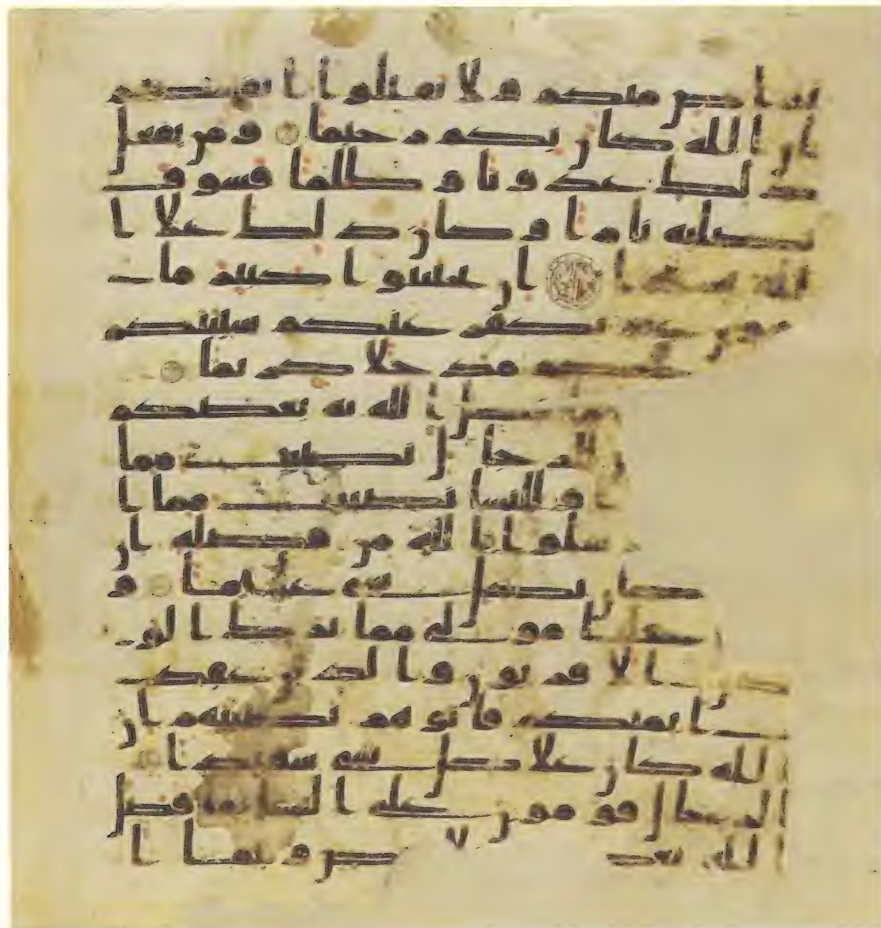 تراض منكم ولا تقتلوا انفسكم
ان الله كان بكم رحيما ومن يفعل
ذلك عدونا وظلما فسوف
نصليه نارا وكان ذلك علا ا
لله يسيرا ان تجتنبوا كبير ما تـ
نهون عنه نكفر عنكم سيتكم
خلكم مدخلا كريما
ما فضل الله به بعضكم
للرجال نصيب مما
ا وللنسا نصيب مما ا
وسلوا الله من فضله ان
كان بكل شي عليما و
جعلنا مولي مما ترك الو
لدن والاقربون والذين عقد
ت ايمنكم فاتوهم نصيبهم ان
الله كان علا كل شي شهيدا
الرجال قومون على النسا بما فضل
الله بعض وبما ا